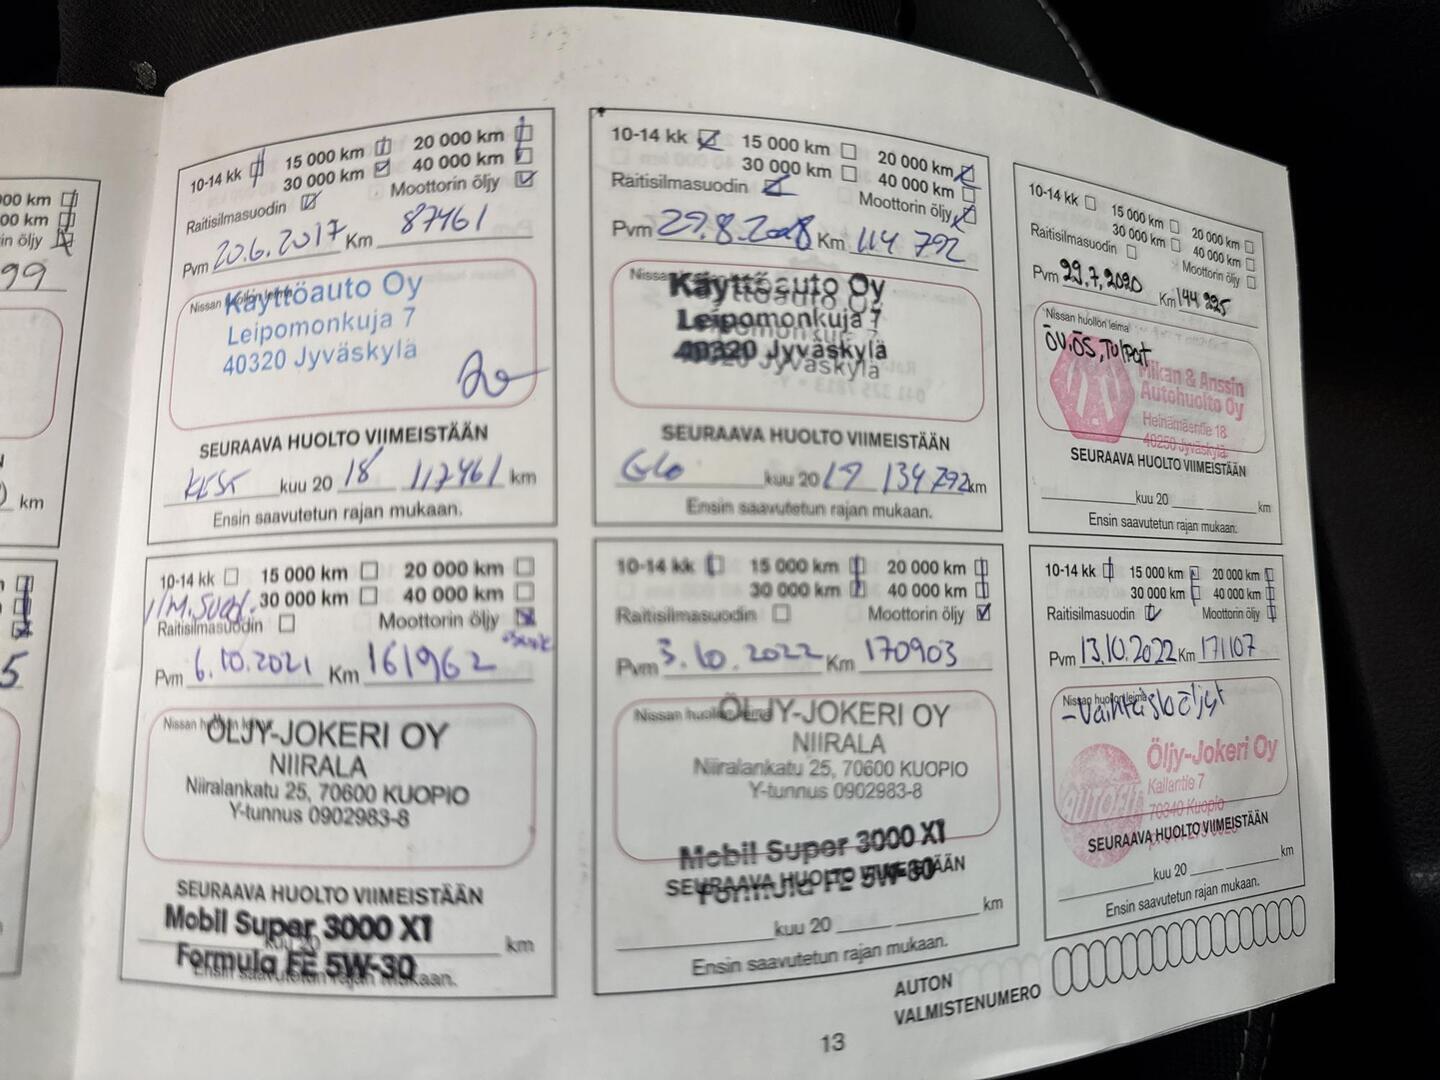 00 km
00 km
in öljy
99
km
5
10-14 kk 15 000 km 20 000 km
30 000 km 40 000 km
Raitisilmasuodin Moottorin öljy
Pvm 20.6.2017 Km 87461
Nissan huollon leima
Käyttöauto Oy
Leipomonkuja 7
40320 Jyväskylä
SEURAAVA HUOLTO VIIMEISTÄÄN
KESÄ kuu 20 18 117461 km
Ensin saavutetun rajan mukaan.
10-14 kk 15 000 km 20 000 km
30 000 km 40 000 km
Raitisilmasuodin Moottorin öljy
Pvm 29.8.2018 Km 114 792
Käyttöauto Oy
Leipomonkuja 7
40320 Jyväskylä
SEURAAVA HUOLTO VIIMEISTÄÄN
Elo kuu 20 19 134 792 km
Ensin saavutetun rajan mukaan.
10-14 kk 15 000 km 20 000 km
30 000 km 40 000 km
Raitisilmasuodin Moottorin öljy
Pvm 29.7.2020 Km 144 225
Nissan huollon leima
ÖV, ÖS, Tulpat
Mikan & Anssin
Autohuolto Oy
Heinämäentie 18
40250 Jyväskylä
SEURAAVA HUOLTO VIIMEISTÄÄN
kuu 20 km
Ensin saavutetun rajan mukaan.
10-14 kk 15 000 km 20 000 km
30 000 km 40 000 km
Raitisilmasuodin Moottorin öljy
Pvm 6.10.2021 Km 161962
Nissan huollon leima
ÖLJY-JOKERI OY
NIIRALA
Niiralankatu 25, 70600 KUOPIO
Y-tunnus 0902983-8
SEURAAVA HUOLTO VIIMEISTÄÄN
Mobil Super 3000 X1
kuu 20 km
Formula FE 5W-30
Ensin saavutetun rajan mukaan.
10-14 kk 15 000 km 20 000 km
30 000 km 40 000 km
Raitisilmasuodin Moottorin öljy
Pvm 3.10.2022 Km 170903
Nissan huollon leima
ÖLJY-JOKERI OY
NIIRALA
Niiralankatu 25, 70600 KUOPIO
Y-tunnus 0902983-8
Mobil Super 3000 X1
SEURAAVA HUOLTO VIIMEISTÄÄN
Formula FE 5W-30
kuu 20 km
Ensin saavutetun rajan mukaan.
10-14 kk 15 000 km 20 000 km
30 000 km 40 000 km
Raitisilmasuodin Moottorin öljy
Pvm 13.10.2022 Km 171107
Nissan huollon leima
Öljy-Jokeri Oy
Kallantie 7
70340 Kuopio
SEURAAVA HUOLTO VIIMEISTÄÄN
kuu 20 km
Ensin saavutetun rajan mukaan.
AUTON
VALMISTENUMERO
13